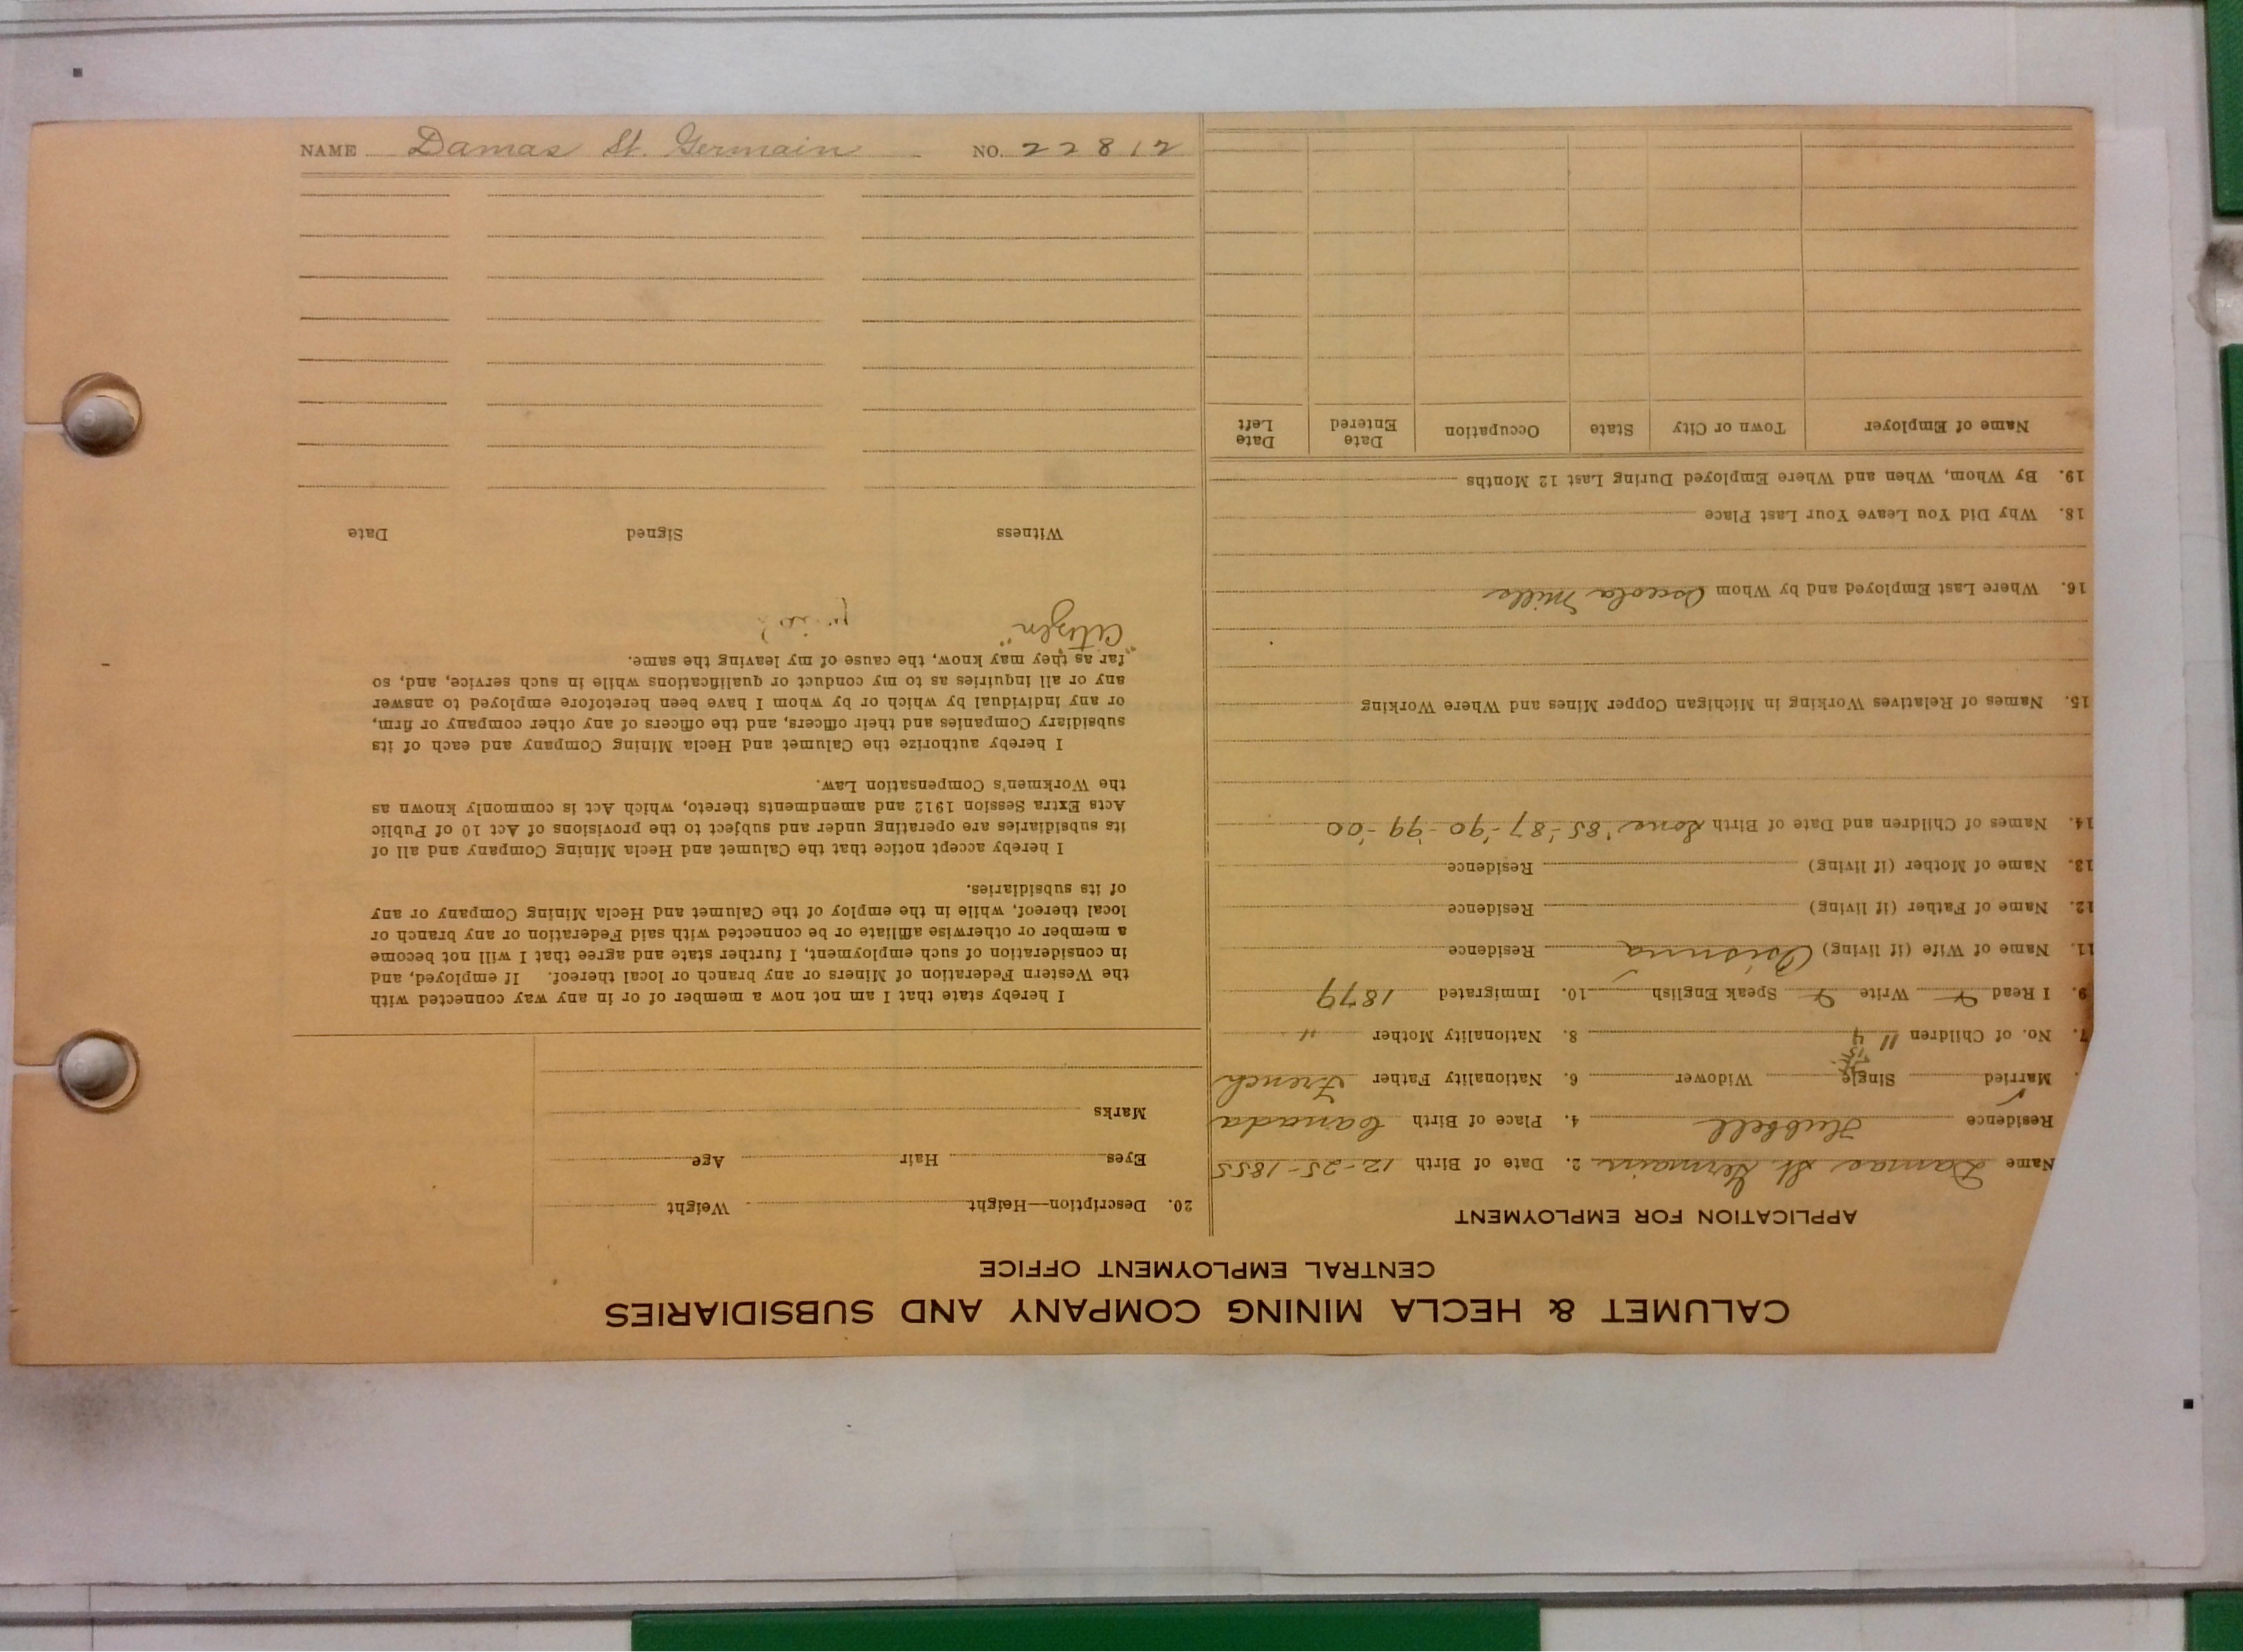 CALUMET & HECLA MINING COMPANY AND SUBSIDIARIES
CENTRAL EMPLOYMENT OFFICE
APPLICATION FOR EMPLOYMENT
Name Damas St. Germain 2. Date of Birth 12-25-1855
Residence Hubbell 4. Place of Birth Canada
Married Single Widower 6. Nationality Father French
7. No. of Children 11 8. Nationality Mother "
9. I Read Write Speak English 10. Immigrated 1879
11. Name of Wife (if living) Residence
12. Name of Father (if living) Residence
13. Name of Mother (if living) Residence
14. Names of Children and Date of Birth Sons '85-'87-'90-'99-'00
15. Names of Relatives Working in Michigan Copper Mines and Where Working
16. Where Last Employed and by Whom Osceola Mills
18. Why Did You Leave Your Last Place
19. By Whom, When and Where Employed During Last 12 Months
Name of Employer Town or City State Occupation Date Entered Date Left
20. Description—Height Weight
Eyes Hair Age
Marks
I hereby state that I am not now a member of or in any way connected with
the Western Federation of Miners or any branch or local thereof. If employed, and
in consideration of such employment, I further state and agree that I will not become
a member or otherwise affiliate or be connected with said Federation or any branch or
local thereof, while in the employ of the Calumet and Hecla Mining Company or any
of its subsidiaries.
I hereby accept notice that the Calumet and Hecla Mining Company and all of
its subsidiaries are operating under and subject to the provisions of Act 10 of Public
Acts Extra Session 1912 and amendments thereto, which Act is commonly known as
the Workmen's Compensation Law.
I hereby authorize the Calumet and Hecla Mining Company and each of its
subsidiary Companies and their officers, and the officers of any other company or firm,
or any individual by which or by whom I have been heretofore employed to answer
any or all inquiries as to my conduct or qualifications while in such service, and, so
far as they may know, the cause of my leaving the same.
"Citizen"
Witness Signed Date
NAME Damas St. Germain NO. 22812